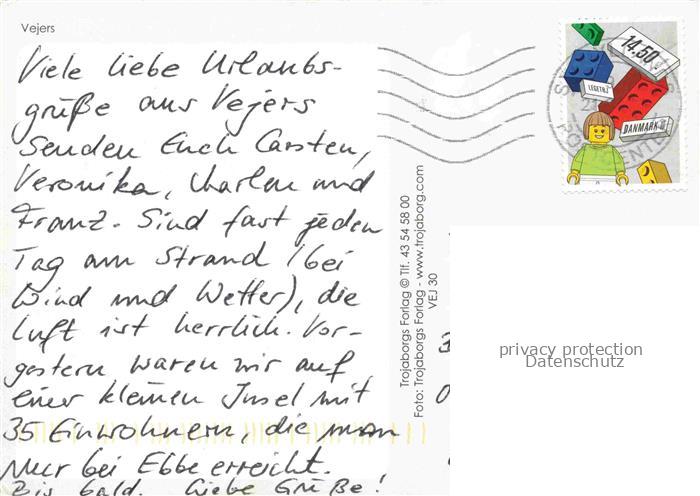 Vejers
Viele liebe Urlaubs-
grüße aus Vejers
senden Euch Carsten,
Veronika, Marlen und
Franz. Sind fast jeden
Tag am Strand (bei
Wind und Wetter), die
Luft ist herrlich. Vor-
gestern waren wir auf
einer kleinen Insel mit
35 Einwohnern, die man
nur bei Ebbe erreicht.
Bis bald. Liebe Grüße!
Trojaborgs Forlag © Tlf. 43 54 58 00
Foto: Trojaborgs Forlag - www.trojaborg.com
VEJ 30
14.50
LEGETØJ
DANMARK
privacy protection
Datenschutz